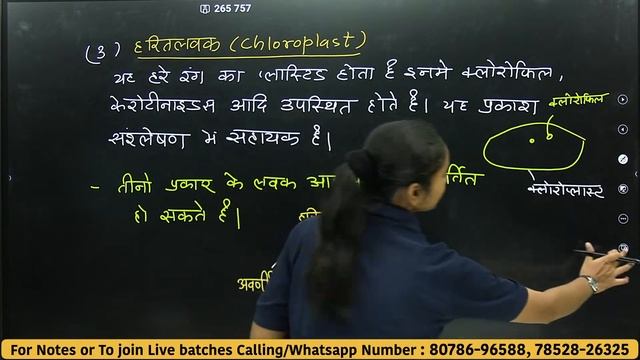 265 757
(३) हरितलवक (Chloroplast)
यह हरे रंग का प्लास्टिड होता है इनमे क्लोरोफिल,
केरोटीनाइडस आदि उपस्थित होते है। यह प्रकाश
क्लोरोफिल
संश्लेषण में सहायक है।
क्लोरोप्लास्ट
- तीनो प्रकार के लवक
हो सकते है।
For Notes or To join Live batches Calling/Whatsapp Number : 80786-96588, 78528-26325